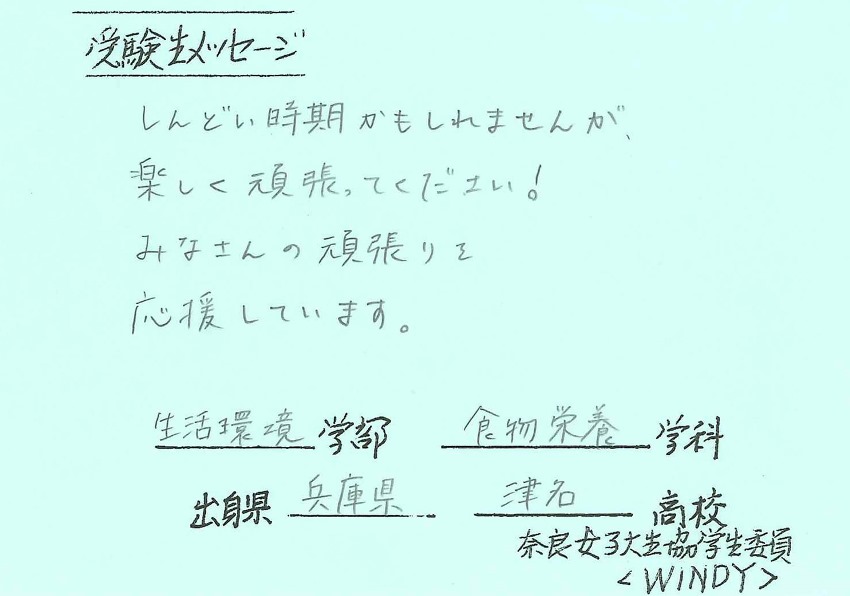 受験生メッセージ
しんどい時期かもしれませんが、
楽しく頑張ってください!
みなさんの頑張りを
応援しています。
生活環境学部 食物栄養学科
出身県 兵庫県 津名高校
奈良女子大生協学生委員
<WINDY>